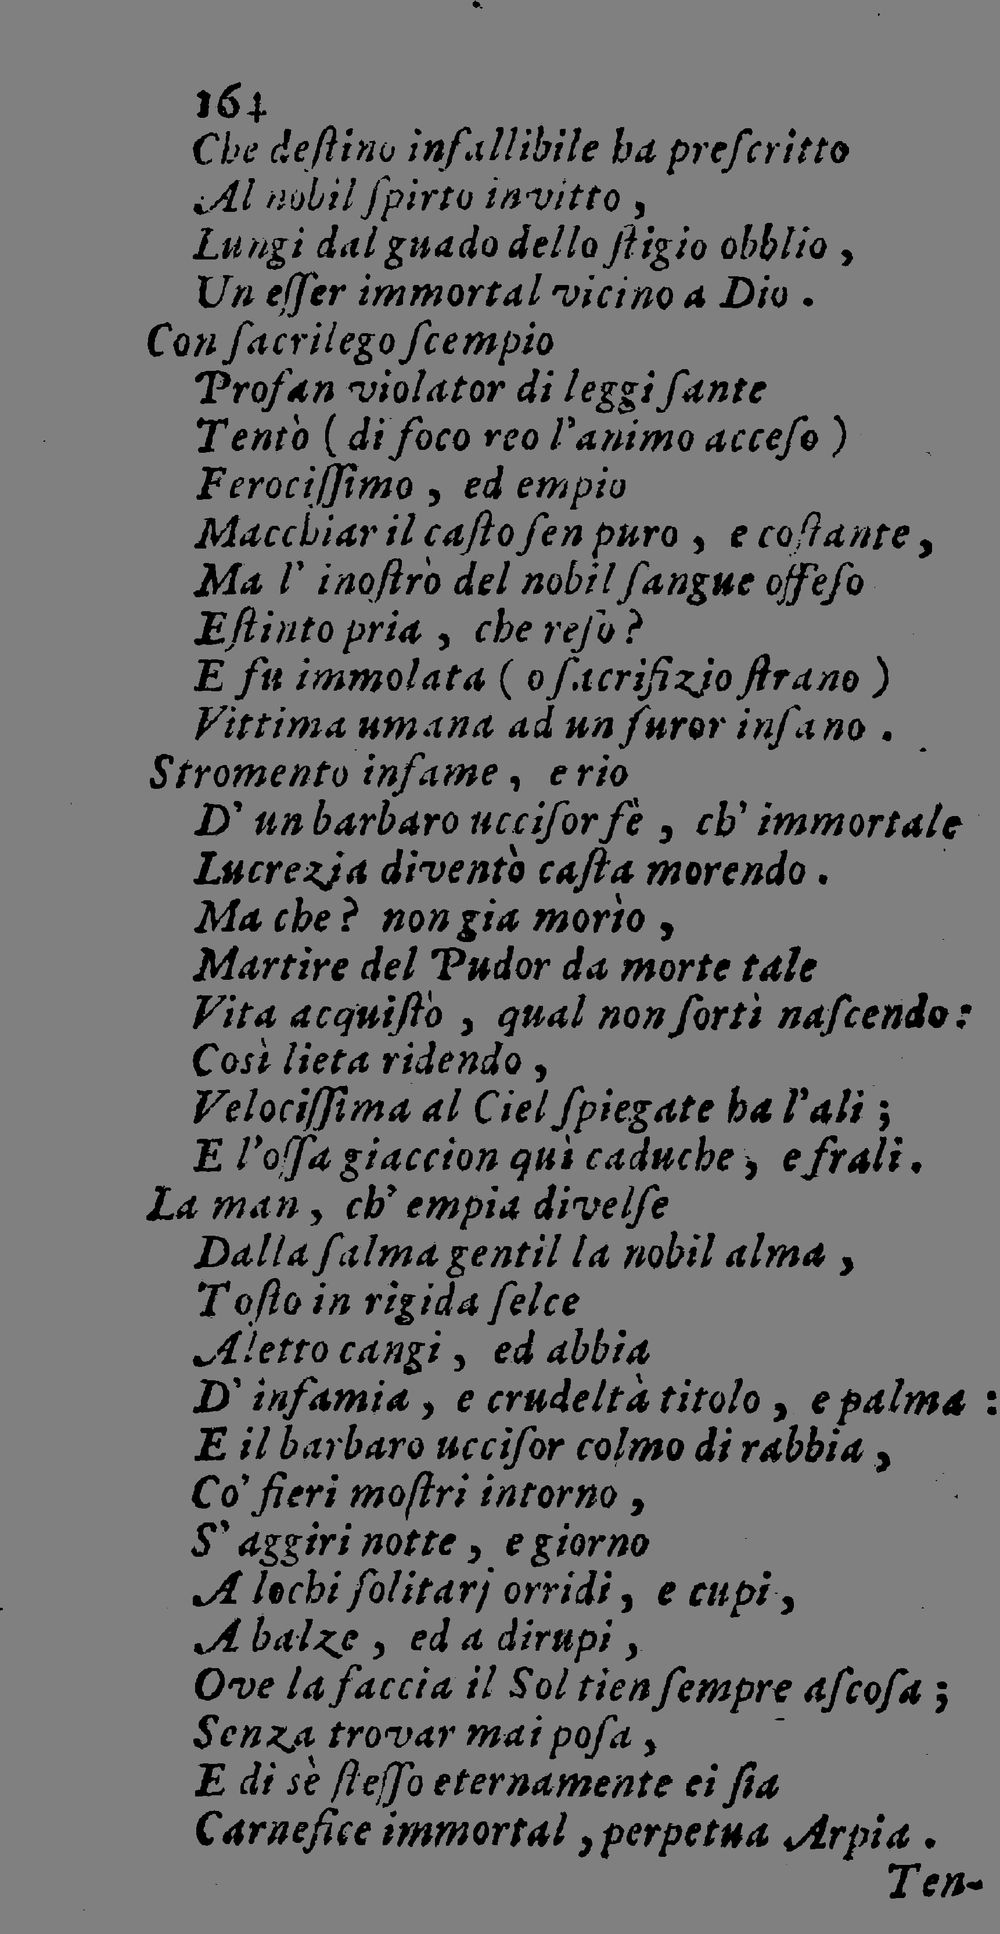 164
Che deſtino infallibile ha preſcritto
Al nobil ſpirto invitto ,
Lungi dal guado dello ſtigio obblio ,
Un eſſer immortal vicino a Dio .
Con ſacrilego ſcempio
Profan violator di leggi ſante
Tentò ( di foco reo l'animo acceſo )
Ferociſſimo , ed empio
Macchiar il caſto ſen puro , e coſtante ,
Ma l' inoſtrò del nobil ſangue offeſo
Eſtinto pria , che reſo ?
E fu immolata ( o ſacrifizio ſtrano )
Vittima umana ad un furor inſano .
Stromento infame , e rio
D' un barbaro ucciſor fè , ch' immortale
Lucrezia diventò caſta morendo .
Ma che ? non gia morìo ,
Martire del Pudor da morte tale
Vita acquiſtò , qual non ſortì naſcendo :
Così lieta ridendo ,
Velociſſima al Ciel ſpiegate ha l'ali ;
E l'oſſa giaccion quì caduche , e frali .
La man , ch' empia divelſe
Dalla ſalma gentil la nobil alma ,
Toſto in rigida ſelce
Aletto cangi , ed abbia
D' infamia , e crudeltà titolo , e palma :
E il barbaro ucciſor colmo di rabbia ,
Co' fieri moſtri intorno ,
S' aggiri notte , e giorno
A lochi ſolitarj orridi , e cupi ,
A balze , ed a dirupi ,
Ove la faccia il Sol tien ſempre aſcoſa ;
Senza trovar mai poſa ,
E di sè ſteſſo eternamente ei ſia
Carnefice immortal , perpetua Arpia .
Ten-